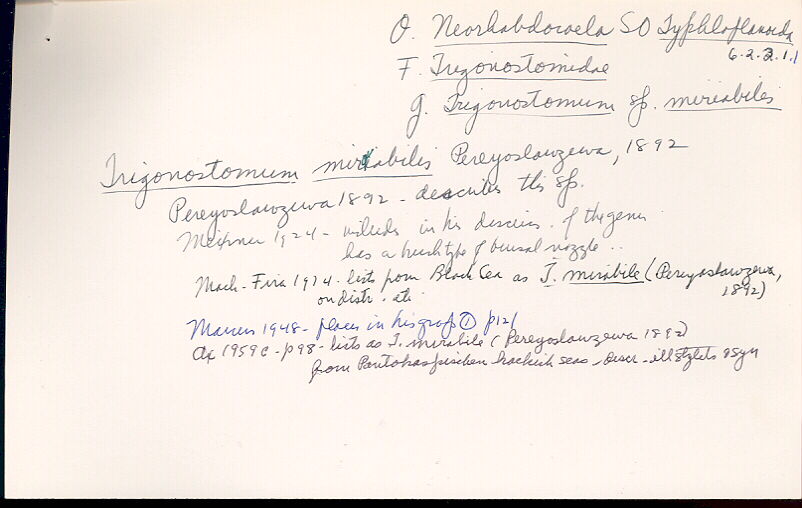 O. Neorhabdocoela SO Typhloplanoida
6.2.2.1.1
F. Trigonostomidae
g. Trigonostomum sp. meriabilis
Trigonostomum mirabilis Pereyoslawzewa, 1892
Pereyoslawzewa 1892 - describes this sp.
Meixner 1924 - includes in his discuss. of the genus
has a brush type of bursal nozzle ..
Mack-Fira 1974 - lists from Black Sea as T. mirabile (Pereyaslawzewa, 1892)
on distr.
Marcus 1948 - places in his group ① p121
Ax 1959c - p98 - lists as T. mirabile (Pereyoslawzewa 1892)
from Pontokaspischen brackish seas - Descr - ill